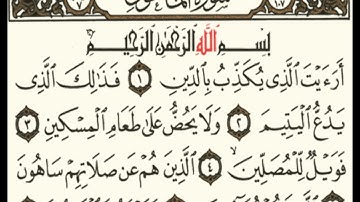 سورة الماعون
بِسْمِ اللَّهِ الرَّحْمَٰنِ الرَّحِيمِ
أَرَءَيْتَ الَّذِي يُكَذِّبُ بِالدِّينِ ١ فَذَٰلِكَ الَّذِي
يَدُعُّ الْيَتِيمَ ٢ وَلَا يَحُضُّ عَلَىٰ طَعَامِ الْمِسْكِينِ ٣
فَوَيْلٌ لِّلْمُصَلِّينَ ٤ الَّذِينَ هُمْ عَن صَلَاتِهِمْ سَاهُونَ